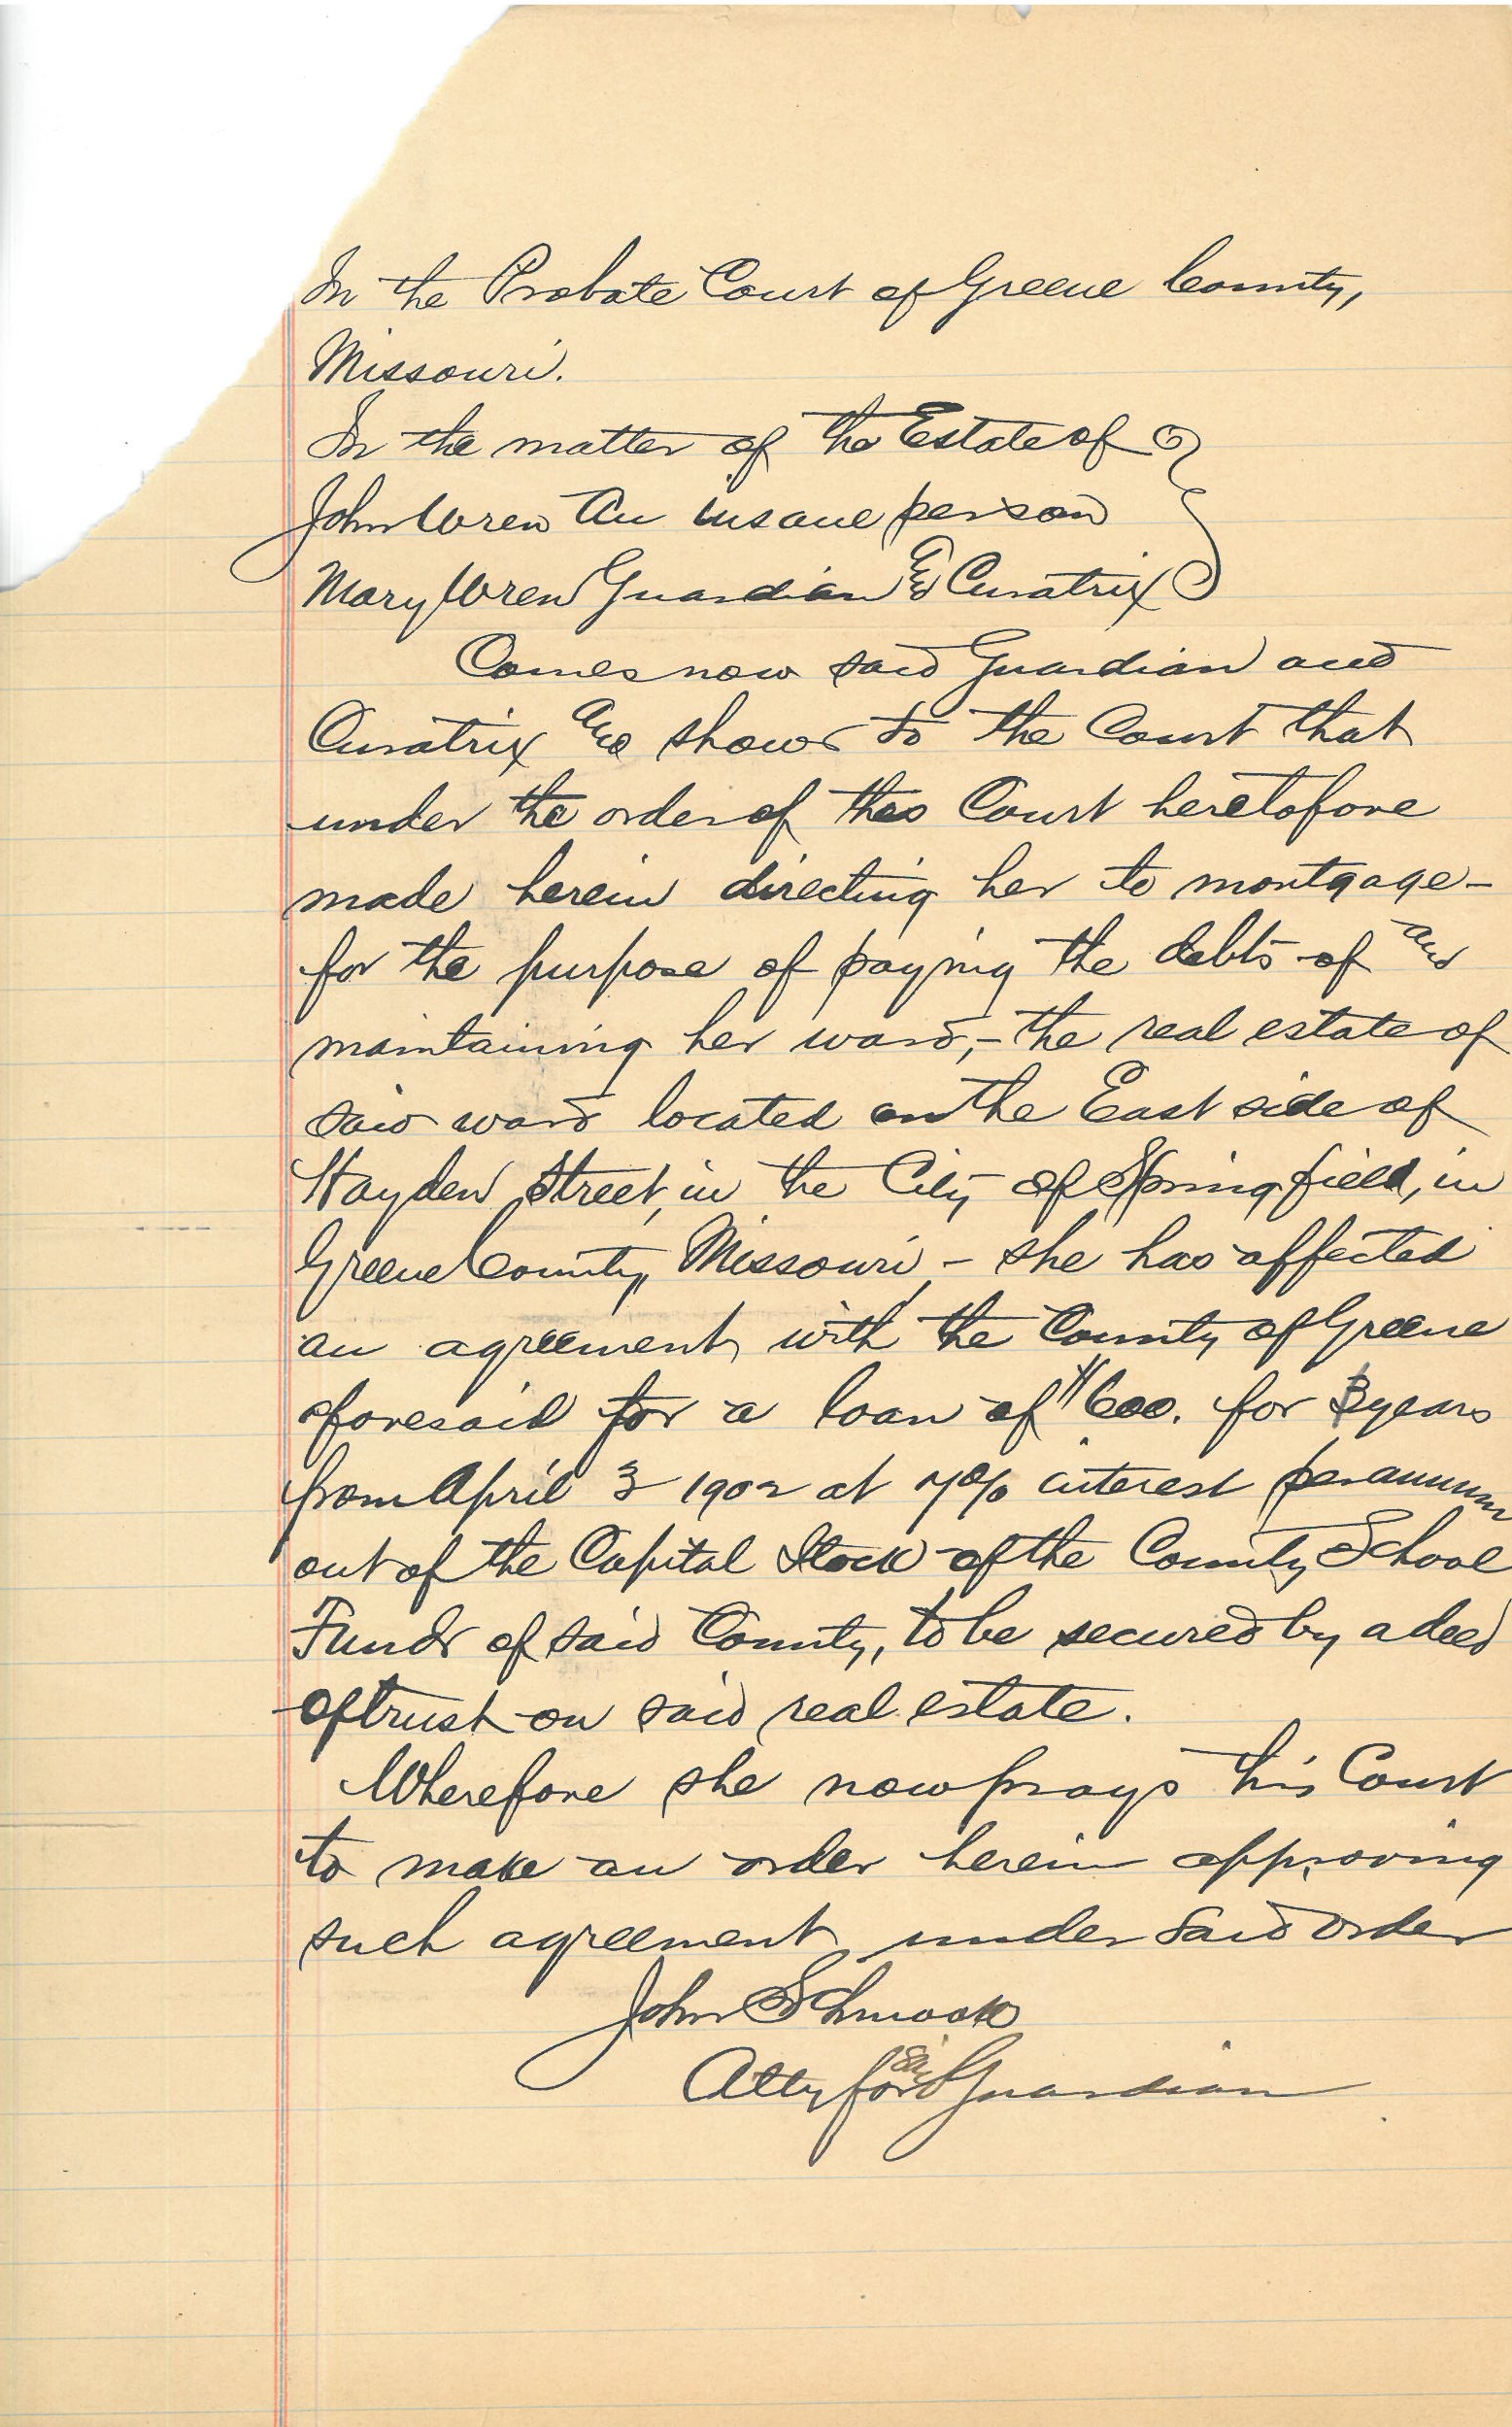 In the Probate Court of Greene County,
Missouri.
In the matter of the Estate of
John Wren An insane person
Mary Wren Guardian & Curatrix
Comes now said Guardian and
Curatrix and shows to the Court that
under the order of this Court heretofore
made herein directing her to mortgage-
for the purpose of paying the debts of and
maintaining her ward,- the real estate of
said ward located on the East side of
Hayden Street, in the City of Springfield, in
Greene County, Missouri,- she has affected
an agreement with the County of Greene
aforesaid for a loan of $600. for 3 years
from April 3 1902 at 7% interest per annum
out of the Capital Stock of the County School
Funds of said County, to be secured by a deed
of trust on said real estate.
Wherefore she now prays this Court
to make an order herein approving
such agreement under said order
John Schmook
Atty for said Guardian